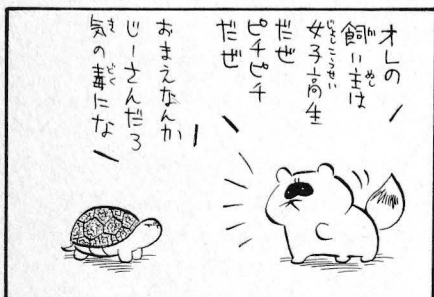 オレの
飼い主は
女子高生
だぜ
ピチピチ
だぜ
おまえなんか
じーさんだろ
気の毒にな